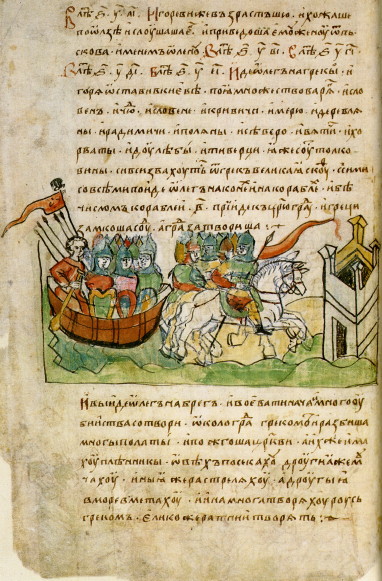 В лѣт҃ ҂ѕ҃ у҃ аı҃ Игореви же възрастъшю, и хожаше
по ѡлзѣ и слоушаше єго, и приведоша ємоу женоу ѿ пль
скова, именемъ ѡленоу. В лѣт҃ ҂ѕ҃ у҃ вı҃ В лѣт҃ ҂ѕ҃ у҃ гı҃
В лѣт҃ ҂ѕ҃ у҃ дı҃ В лѣт҃ ҂ѕ҃ у҃ еı҃ Иде ѡлегъ на грекы, и
горѧ ѡставив киевѣ поѧ множество варѧгъ и слов
венъ и чю и словене и кривичи и мерю и деревлѧ
ны и радимичи и полѧны и сѣверо и вѧтичи и хор
ваты и доулѣбы и тиверци ꙗже соуть толко
вины си вси звахоуть ѿ грекъ великаꙗ скоу си ми
со всѣми поиде ѡлегъ на конех и на кораблех и бѣ
числомъ кораблей в҃ приидекъ црюградоу и греци
замкоша соуд а град затвориша
И выиде ѡлегъ на брегъ и воевати нача и много оу
бийства сотвори ѡколо града грекомъ и разбиша
многы полаты и пожгоша церкви а их же имахоу
пленникы ѡвѣхъ посекахоу дроугиꙗ же моу
чахоу иныꙗ же растрелѧхоу а дроугыꙗ
в море вметахоу и ина многа творѧхоу роусь
грекомъ елико же ратнии творѧть